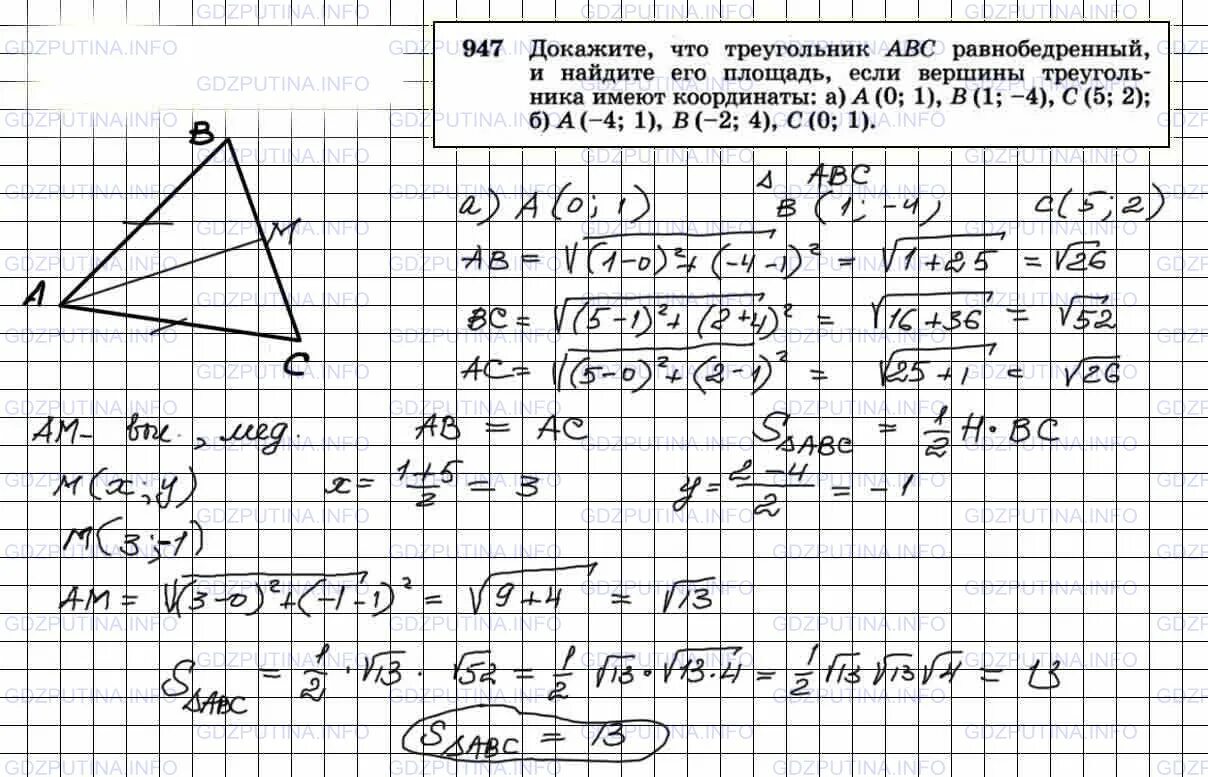 947 Докажите, что треугольник ABC равнобедренный,
и найдите его площадь, если вершины треуголь-
ника имеют координаты: а) A (0; 1), B (1; −4), C (5; 2);
б) A (−4; 1), B (−2; 4), C (0; 1).
B
M
A
C
Δ ABC
а) A (0; 1) B (1; -4) C (5; 2)
AB = √(1-0)² + (-4-1)² = √1+25 = √26
BC = √(5-1)² + (2+4)² = √16+36 = √52
AC = √(5-0)² + (2-1)² = √25+1 = √26
AM - выс., мед. AB = AC S△ABC = 1/2 H·BC
M(x; y) x = 1+5/2 = 3 y = 2-4/2 = -1
M(3; -1)
AM = √(3-0)² + (-1-1)² = √9+4 = √13
S△ABC = 1/2 · √13 · √52 = 1/2 √13 · √13·4 = 1/2 √13 √13 √4 = 13
S△ABC = 13
GDZPUTINA.INFO